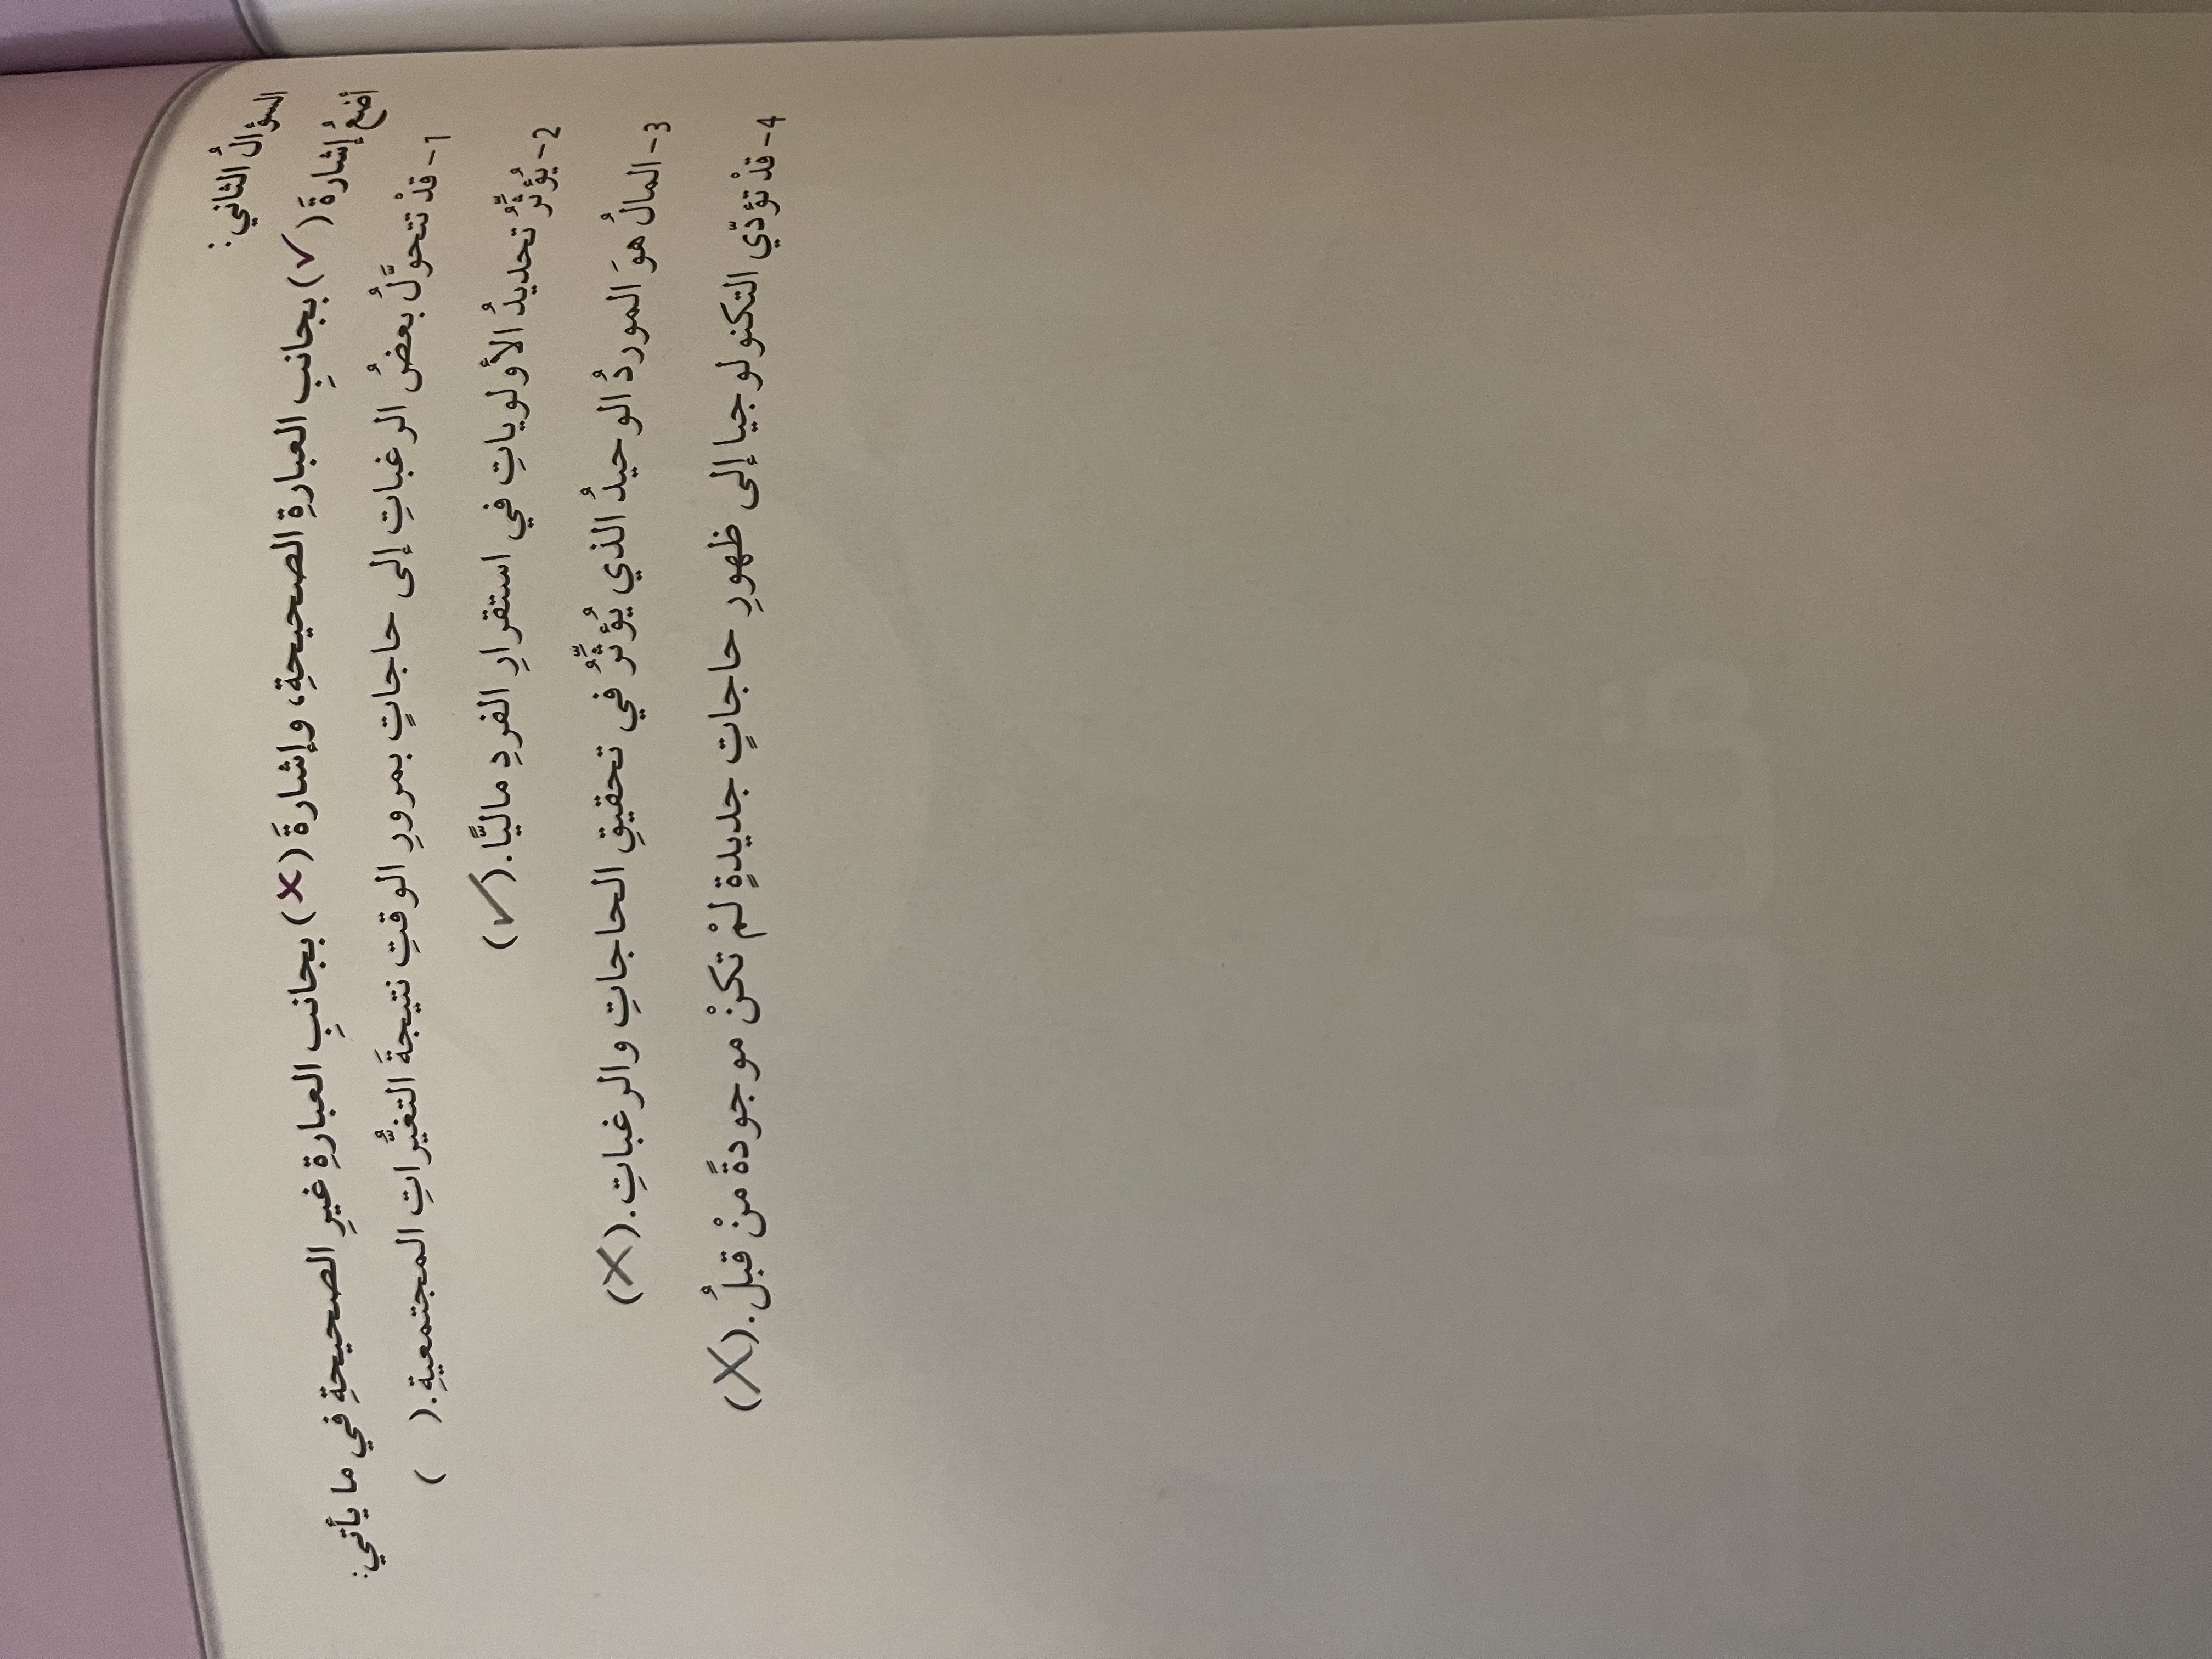 السؤالُ الثاني:
أضعُ إشارةَ (✓) بجانبِ العبارةِ الصحيحةِ، وإشارةَ (✗) بجانبِ العبارةِ غيرِ الصحيحةِ في ما يأتي:
1- قدْ تتحوَّلُ بعضُ الرغباتِ إلى حاجاتٍ بمرورِ الوقتِ نتيجةَ التغيُّراتِ المجتمعيةِ. ( )
2- يُؤثِّرُ تحديدُ الأولوياتِ في استقرارِ الفردِ ماليًّا. (✓)
3- المالُ هوَ الموردُ الوحيدُ الذي يُؤثِّرُ في تحقيقِ الحاجاتِ والرغباتِ. (X)
4- قدْ تؤدّي التكنولوجيا إلى ظهورِ حاجاتٍ جديدةٍ لمْ تكنْ موجودةً منْ قبلُ. (X)